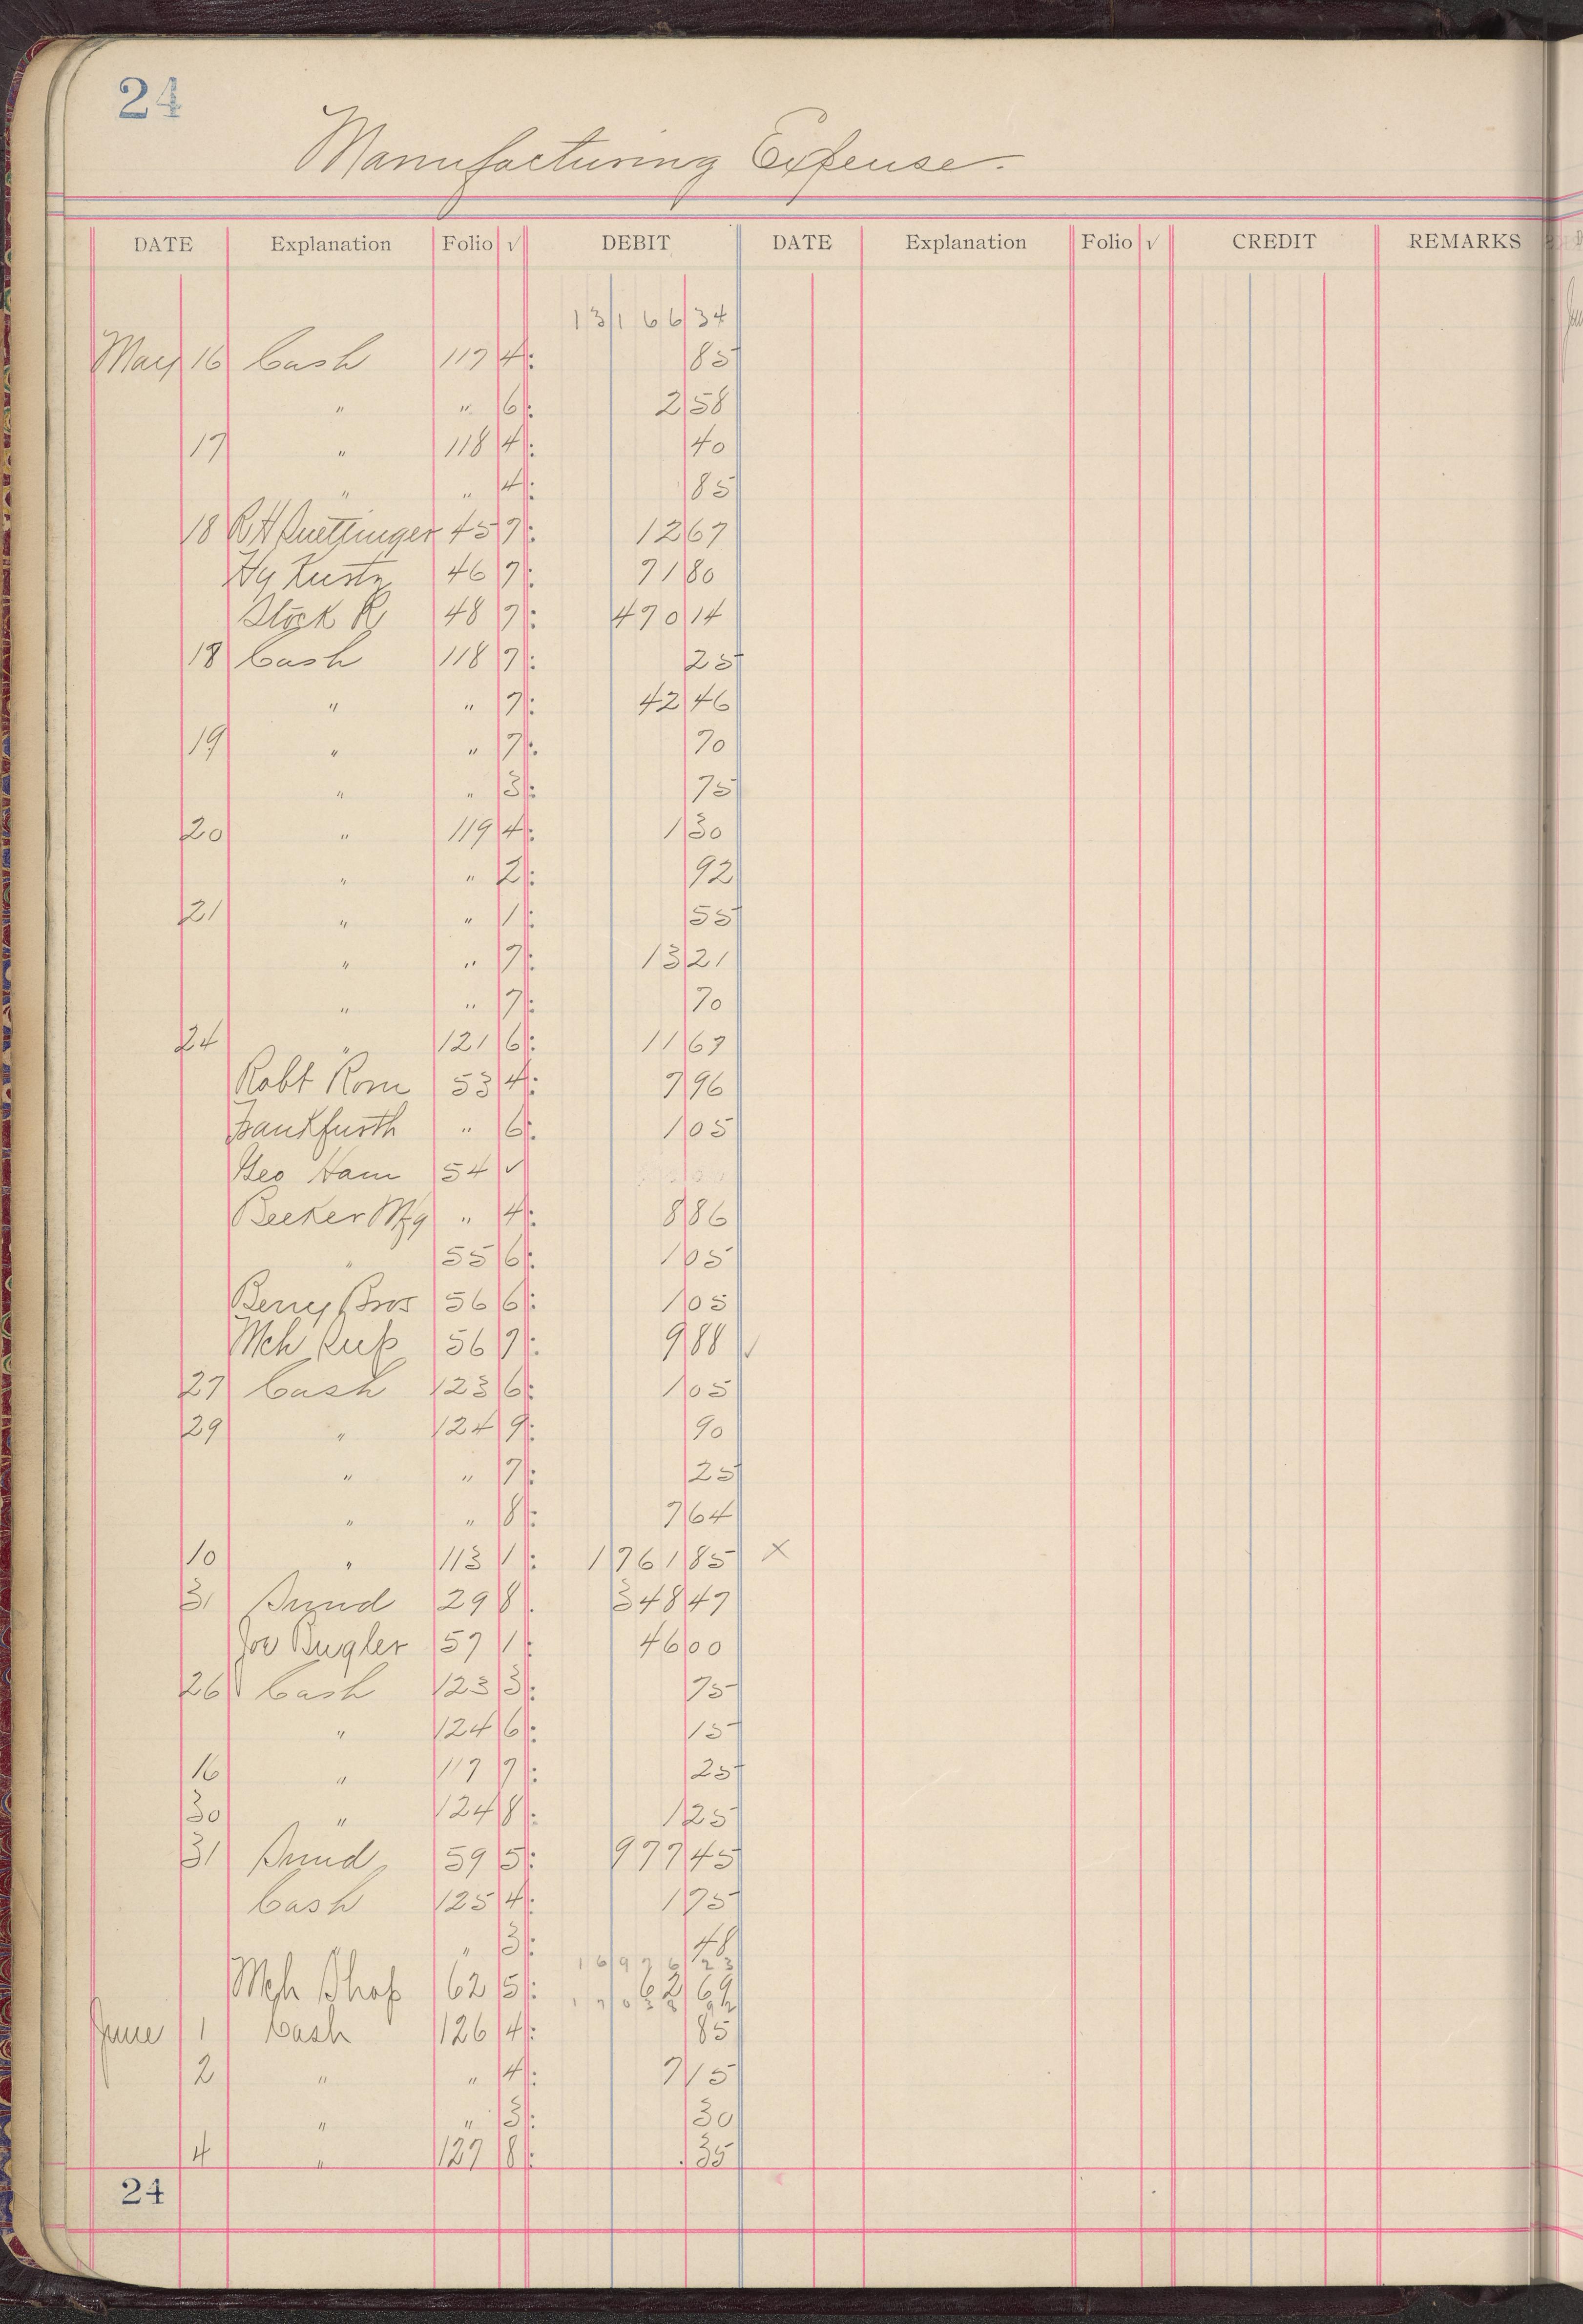 24
Manufacturing Expense.
DATE Explanation Folio √ DEBIT DATE Explanation Folio √ CREDIT REMARKS
13166 34
May 16 Cash 117 4: 85
" " 6: 2 58
17 " 118 4: 40
" " 4: 85
18 R H Puettinger 45 7: 12 67
Hy Kurtz 46 7: 71 80
Stock R 48 7: 470 14
18 Cash 118 7: 25
" " 7: 42 46
19 " " 7: 70
" " 3: 75
20 " 119 4: 1 30
" " 2: 92
21 " " 1: 55
" " 7: 13 21
" " 7: 70
24 " 121 6: 11 67
Robt Rom 53 4: 7 96
Frankfurth " 6: 1 05
Geo Ham 54 ✓
Becker Mfg " 4: 8 86
" 55 6: 1 05
Berry Bros 56 6: 1 05
Mch 56 7: 9 88 ✓
27 Cash 123 6: 1 05
29 " 124 9: 90
" " 7: 25
" " 8: 7 64
10 " 113 1: 1761 85 X
31 Sund 29 8. 348 47
Joe Bugler 57 1: 46 00
26 Cash 123 3: 75
" 124 6: 15
16 " 117 7: 25
30 " 124 8: 1 25
31 Sund 59 5: 977 45
Cash 125 4: 1 75
" " 3: 48
16976 23
Mch Shop 62 5: 62 69
17038 92
June 1 Cash 126 4: 85
2 " " 4: 7 15
" " 3: 30
4 " 127 8: .35
24